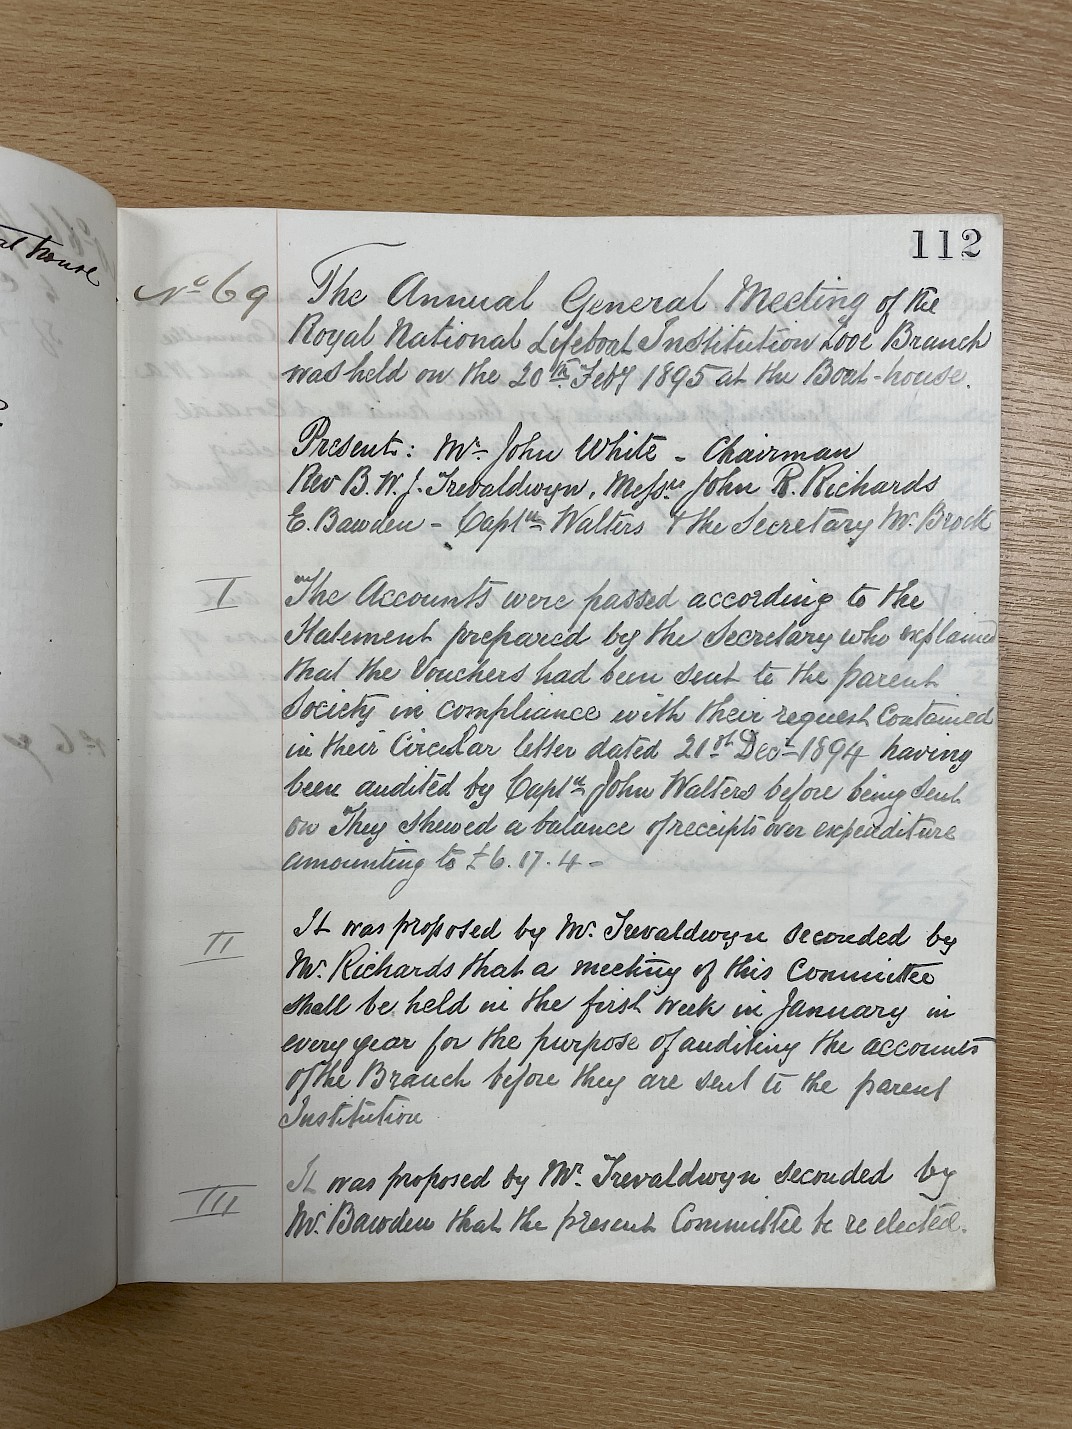 112
No 69
The Annual General Meeting of the
Royal National Lifeboat Institution Looe Branch
was held on the 20th Feby 1895 at the Boat-house.
Present: Mr John White - Chairman
Rev B. W. J. Trevaldwyn, Messrs John R. Richards
E. Bawden - Captn Walters & the Secretary Mr. Brock
I
The Accounts were passed according to the
Statement prepared by the Secretary who explained
that the Vouchers had been sent to the parent
Society in compliance with their request contained
in their Circular letter dated 21st Decr 1894 having
been audited by Captn John Walters before being sent
on They shewed a balance of receipts over expenditure
amounting to £6.17.4-
II
It was proposed by Mr. Trevaldwyn seconded by
Mr. Richards that a meeting of this Committee
shall be held in the first week in January in
every year for the purpose of auditing the accounts
of the Branch before they are sent to the parent
Institution
III
It was proposed by Mr. Trevaldwyn seconded by
Mr. Bawden that the present Committee be re elected.